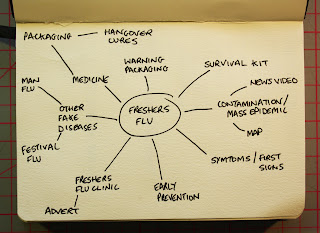 PACKAGING
HANGOVER
CURES
WARNING
PACKAGING
SURVIVAL KIT
MEDICINE
NEWS VIDEO
MAN
FLU
OTHER
FAKE
DISEASES
FRESHERS
FLU
CONTAMINATION/
MASS EPIDEMIC
MAP
FESTIVAL
FLU
SYMTOMS / FIRST
SIGNS
FRESHERS
FLU CLINIC
EARLY
PREVENTION
ADVERT